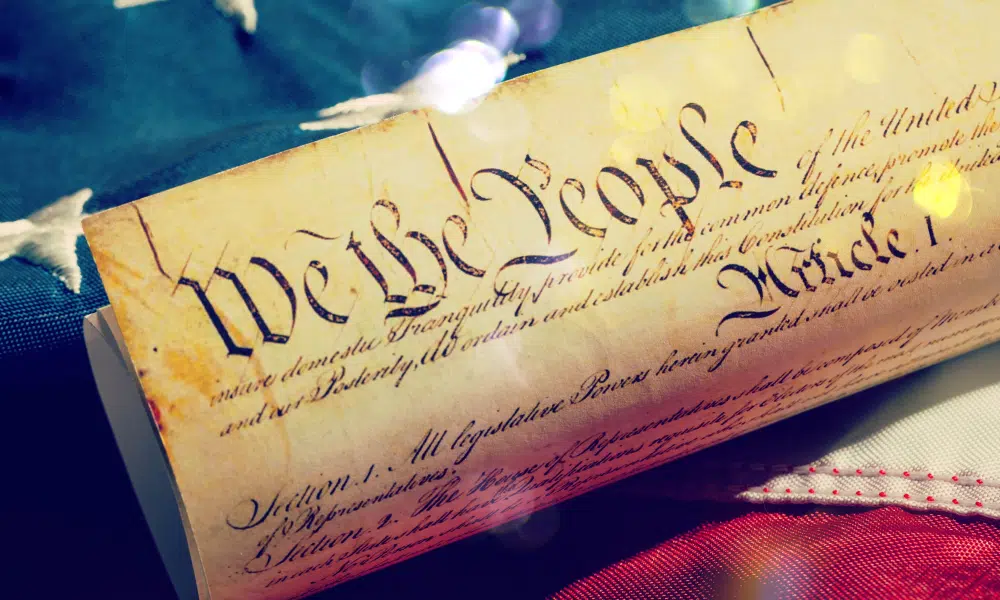 We the People of the United
insure domestic Tranquility, provide for the common defence, promote the
and our Posterity, do ordain and establish this Constitution for the United
Article. I.
Section. 1. All legislative Powers herein granted shall be vested in a
of Representatives.
Section. 2. The House of Representatives shall be composed of Memb
in each State shall have Qualifications requisite for Electors of the most
No Person